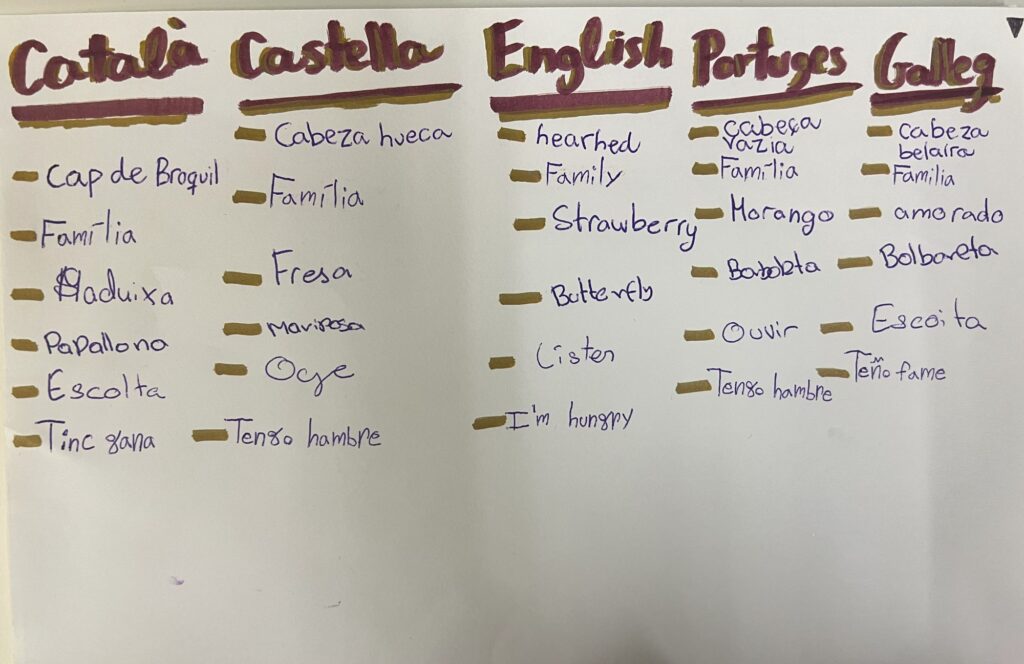 Català
Cap de Broquil
Família
Maduixa
Papallona
Escolta
Tinc gana
Castella
Cabeza hueca
Família
Fresa
Mariposa
Oye
Tengo hambre
English
hearhed
Family
Strawberry
Butterfly
Listen
I'm hungry
Portuges
cabeça
vazia
Família
Morango
Ouvir
Tengo hambre
Galleg
cabeza
belaira
Familia
amorado
Bolboreta
Escoita
Teño fame